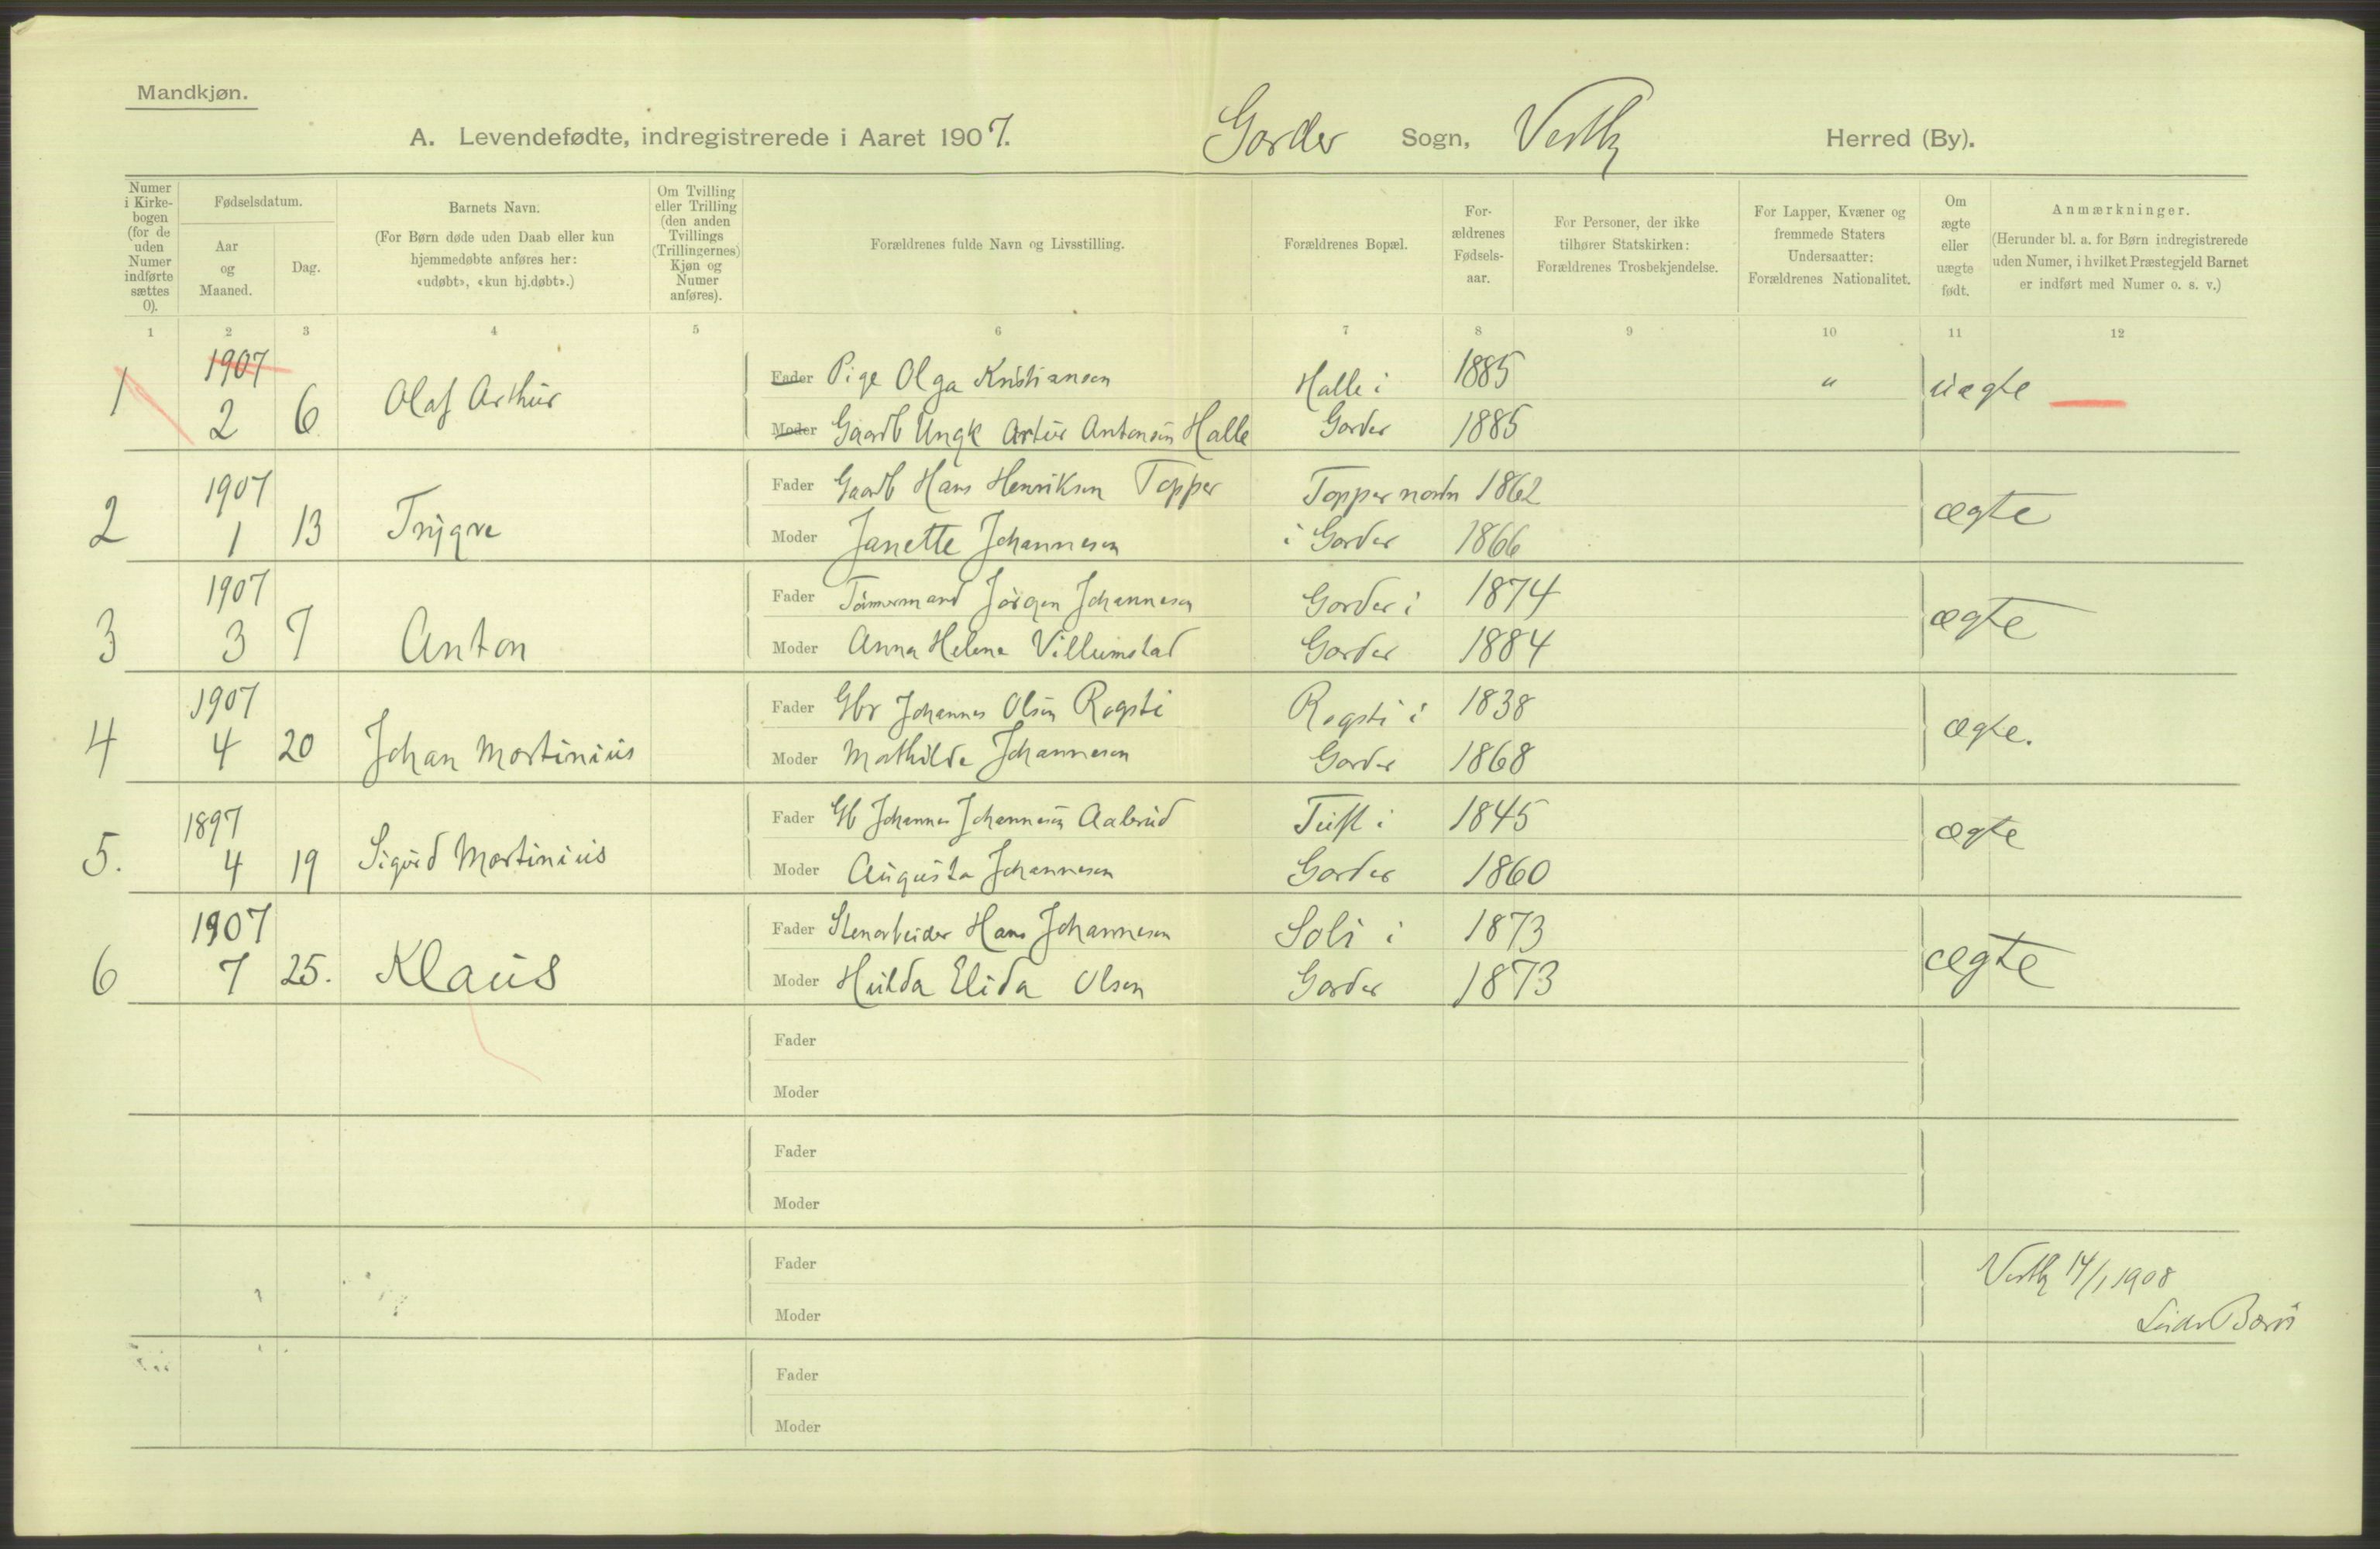 Mandkjøn.
A. Levendefødte, indregistrerede i Aaret 1907. Garder Sogn, Vestby Herred (By).
Numer i Kirke-bogen (for de uden Numer indførte sættes 0).
Fødselsdatum.
Aar og Maaned.
Dag.
Barnets Navn.
(For Børn døde uden Daab eller kun hjemmedøbte anføres her: «udøbt», «kun hj.døbt».)
Om Tvilling eller Trilling (den anden Tvillings (Trillingernes) Kjøn og Numer anføres).
Forældrenes fulde Navn og Livsstilling.
Forældrenes Bopæl.
For-ældrenes Fødsels-aar.
For Personer, der ikke tilhører Statskirken: Forældrenes Trosbekjendelse.
For Lapper, Kvæner og fremmede Staters Undersaatter: Forældrenes Nationalitet.
Om ægte eller uægte født.
Anmærkninger.
(Herunder bl. a. for Børn indregistrerede uden Numer, i hvilket Præstegjeld Barnet er indført med Numer o. s. v.)
1 2 3 4 5 6 7 8 9 10 11 12
1907 Fader Pige Olga Kristiansen Halle i 1885 " uægte
1 2 6 Olaf Arthur Moder Gaardb Ungk Artur Antonsen Halle Garder 1885
1907 Fader Gaardb Hans Henriksen Topper Topper nordn 1862 ægte
2 1 13 Trygve Moder Janette Johannesen i Garder 1866
1907 Fader Tömmermand Jörgen Johannesen Garder i 1874 ægte
3 3 7 Anton Moder Anna Helene Villumstad Garder 1884
1907 Fader Gbr Johannes Olsen Rogsti Rogsti i 1838 ægte.
4 4 20 Johan Martinius Moder Mathilde Johannesen Garder 1868
1897 Fader Gb Johannes Johannesen Aalerud Tuft i 1845 ægte
5. 4 19 Sigurd Martinius Moder Augusta Johannesen Garder 1860
1907 Fader Stenarbeider Hans Johannesen Soli i 1873 ægte
6 7 25. Klaus Moder Hulda Elida Olsen Garder 1873
Fader
Moder
Fader
Moder
Fader
Vestby 14/1 1908
Moder
Fader
Moder